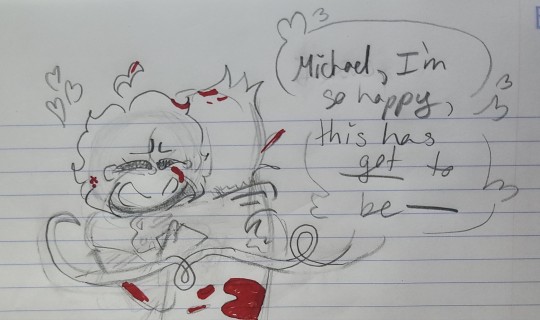 Michael, I'm
so happy,
this has
got to
be —